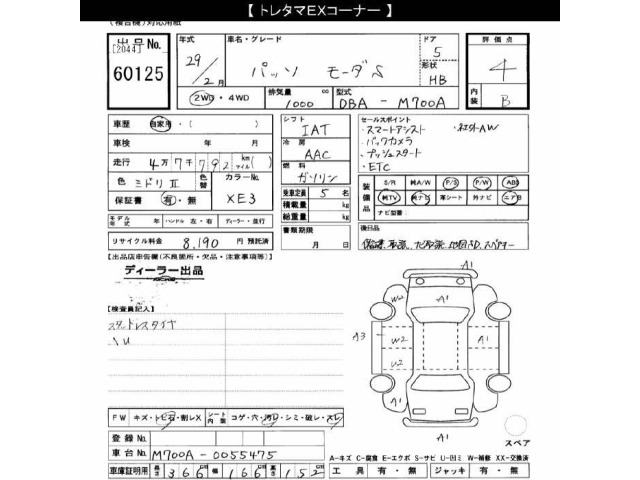 【 トレタマEXコーナー 】
(複合機)対応用紙
出品No.
[2044]
60125
年式
29/2月
車名・グレード
パッソ モーダS
ドア
5
形状
HB
評価点
4
内装
B
2WD・4WD
排気量
1000 cc
型式
DBA - M700A
車歴 自家用・( )
車検 年 月
走行 4万7千792 km マイル ( )
色 ミドリII
色替
カラーNo.
XE3
保証書 有・無
シフト
IAT
冷房
AAC
燃料
ガソリン
乗車定員 5 名
積載量 kg
総重量 kg
セールスポイント
・スマートアシスト ・社外AW
・バックカメラ
・プッシュスタート
・ETC
装備品
S/R 純A/W P/S P/W ABS
純TV 純ナビ 革シート 外ナビ エアB
ナビ型番:
モデル年式 年 ハンドル 左・右 ディーラー・並行
書類期限
月 日
後日品
リサイクル料金 8,190 円 預託済
[出品店車申告欄(不良箇所・欠品・注意事項等)]
ディーラー出品
[検査員記入]
スタットレスタイヤ
\ u
A1
W2
A1
A3
W2
A1
U2
A1
A1
スペア
FW キズ・トビ石・割レX シート内装 コゲ・穴・汚レ・シミ・破レ・スレ
登録No.
車台No. M700A - 0055475
車庫証明用 長さ 366 cm 幅 166 cm 高さ 152 cm
A-キズ C-腐食 E-エクボ S-サビ U-凹ミ W-補修 XX-交換済
工具 有・無 ジャッキ 有・無